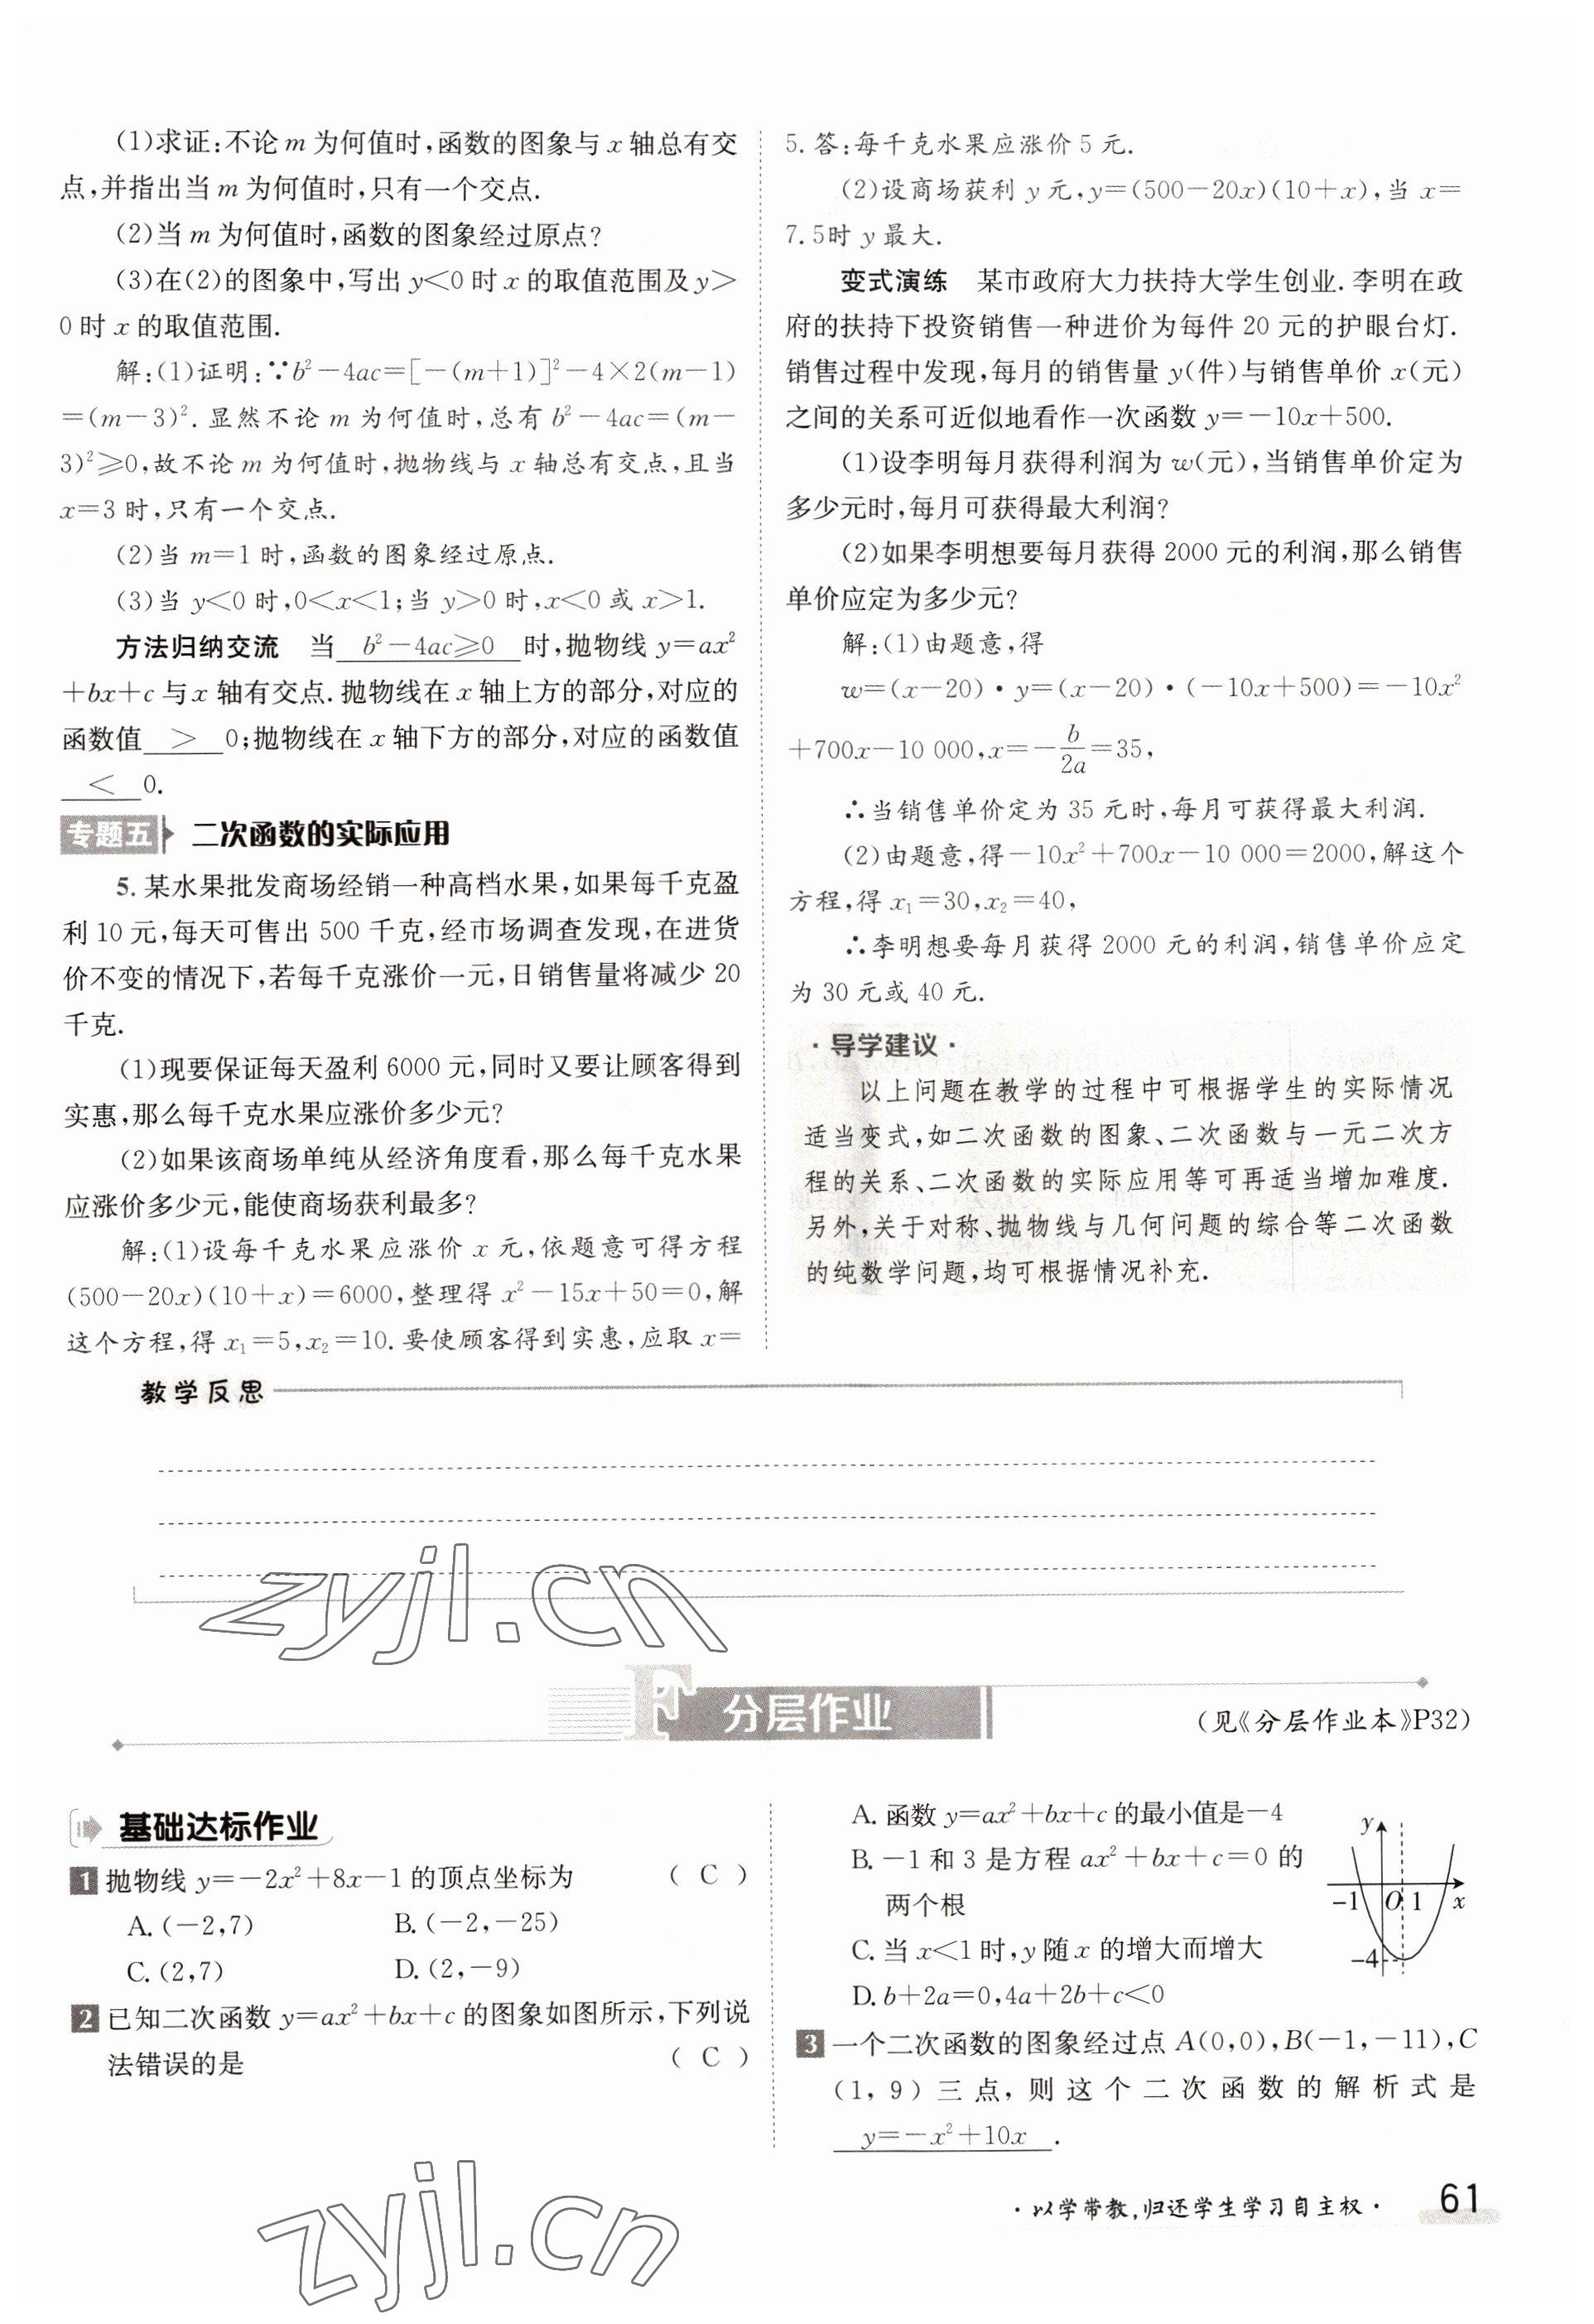 (1)求证:不论 m 为何值时,函数的图象与 x 轴总有交
点,并指出当 m 为何值时,只有一个交点.
(2)当 m 为何值时,函数的图象经过原点?
(3)在(2)的图象中,写出 y<0 时 x 的取值范围及 y>
0 时 x 的取值范围.
解:(1)证明:∵b²-4ac=[-(m+1)]²-4×2(m-1)
=(m-3)².显然不论 m 为何值时,总有 b²-4ac=(m-
3)²≥0,故不论 m 为何值时,抛物线与 x 轴总有交点,且当
x=3 时,只有一个交点.
(2)当 m=1 时,函数的图象经过原点.
(3)当 y<0 时,0<x<1;当 y>0 时,x<0 或 x>1.
方法归纳交流 当 b²-4ac≥0 时,抛物线 y=ax²
+bx+c 与 x 轴有交点.抛物线在 x 轴上方的部分,对应的
函数值 > 0;抛物线在 x 轴下方的部分,对应的函数值
< 0.
专题五 二次函数的实际应用
5.某水果批发商场经销一种高档水果,如果每千克盈
利 10 元,每天可售出 500 千克,经市场调查发现,在进货
价不变的情况下,若每千克涨价一元,日销售量将减少 20
千克.
(1)现要保证每天盈利 6000 元,同时又要让顾客得到
实惠,那么每千克水果应涨价多少元?
(2)如果该商场单纯从经济角度看,那么每千克水果
应涨价多少元,能使商场获利最多?
解:(1)设每千克水果应涨价 x 元,依题意可得方程
(500-20x)(10+x)=6000,整理得 x²-15x+50=0,解
这个方程,得 x₁=5,x₂=10.要使顾客得到实惠,应取 x=
5.答:每千克水果应涨价 5 元.
(2)设商场获利 y 元,y=(500-20x)(10+x),当 x=
7.5时 y 最大.
变式演练 某市政府大力扶持大学生创业.李明在政
府的扶持下投资销售一种进价为每件 20 元的护眼台灯.
销售过程中发现,每月的销售量 y(件)与销售单价 x(元)
之间的关系可近似地看作一次函数 y=-10x+500.
(1)设李明每月获得利润为 w(元),当销售单价定为
多少元时,每月可获得最大利润?
(2)如果李明想要每月获得 2000 元的利润,那么销售
单价应定为多少元?
解:(1)由题意,得
w=(x-20)·y=(x-20)·(-10x+500)=-10x²
+700x-10 000,x=-b/2a=35,
∴当销售单价定为 35 元时,每月可获得最大利润.
(2)由题意,得-10x²+700x-10 000=2000,解这个
方程,得 x₁=30,x₂=40,
∴李明想要每月获得 2000 元的利润,销售单价应定
为 30 元或 40 元.
·导学建议·
以上问题在教学的过程中可根据学生的实际情况
适当变式,如二次函数的图象、二次函数与一元二次方
程的关系、二次函数的实际应用等可再适当增加难度.
另外,关于对称、抛物线与几何问题的综合等二次函数
的纯数学问题,均可根据情况补充.
教学反思
zyjl.cn
F 分层作业
(见《分层作业本》P32)
基础达标作业
1 抛物线 y=-2x²+8x-1 的顶点坐标为 ( C )
A.(-2,7) B.(-2,-25)
C.(2,7) D.(2,-9)
2 已知二次函数 y=ax²+bx+c 的图象如图所示,下列说
法错误的是 ( C )
A.函数 y=ax²+bx+c 的最小值是-4
B.-1 和 3 是方程 ax²+bx+c=0 的
两个根
C.当 x<1 时,y 随 x 的增大而增大
D.b+2a=0,4a+2b+c<0
y
-1 O 1 x
-4
3 一个二次函数的图象经过点 A(0,0),B(-1,-11),C
(1,9)三点,则这个二次函数的解析式是
y=-x²+10x .
·以学带教,归还学生学习自主权·
61
zyjl.cn